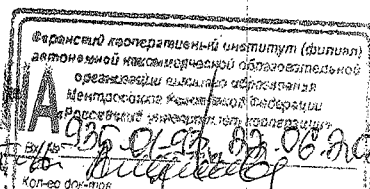 Саранский кооперативный институт (филиал)
автономной некоммерческой образовательной
организации высшего образования
Центросоюза Российской Федерации
«Российский университет кооперации»
Вх.№ 935-01-93, 22.06.20
Кол-во док-тов